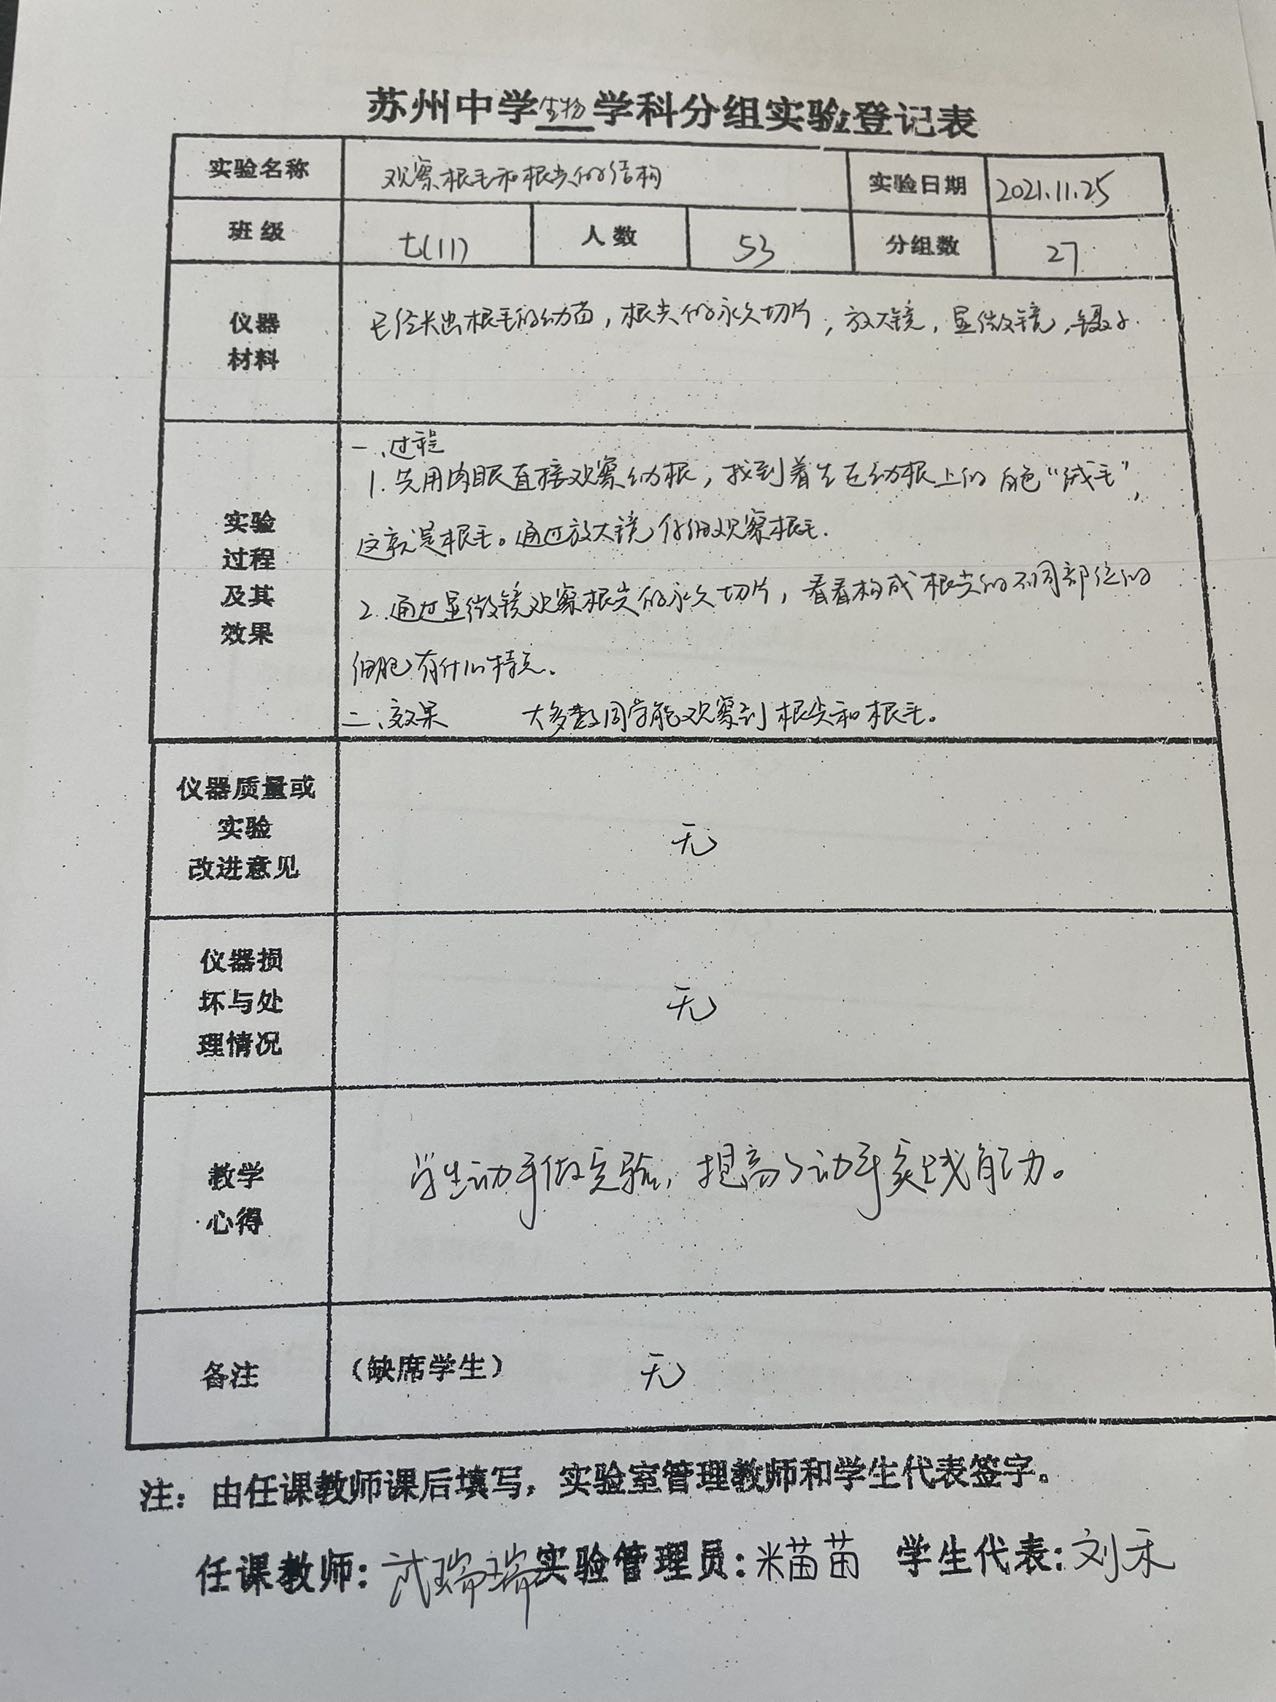 苏州中学生物学科分组实验登记表
实验名称 观察根毛和根尖的结构 实验日期 2021.11.25
班级 七(11) 人数 53 分组数 27
仪器
材料
已经长出根毛的幼苗，根尖的永久切片，放大镜，显微镜，镊子.
实验
过程
及其
效果
一、过程
1. 先用肉眼直接观察幼根，找到着生在幼根上的白色“绒毛”，
这就是根毛。通过放大镜仔细观察根毛.
2. 通过显微镜观察根尖的永久切片，看看构成根尖的不同部位的
细胞有什么特点.
二、效果 大多数同学能观察到根尖和根毛。
仪器质量或
实验
改进意见
无
仪器损
坏与处
理情况
无
教学
心得
学生动手做实验，提高了动手实践能力。
备注 （缺席学生） 无
注：由任课教师课后填写，实验室管理教师和学生代表签字。
任课教师: 武瑞瑞 实验管理员: 苗苗 学生代表: 刘禾